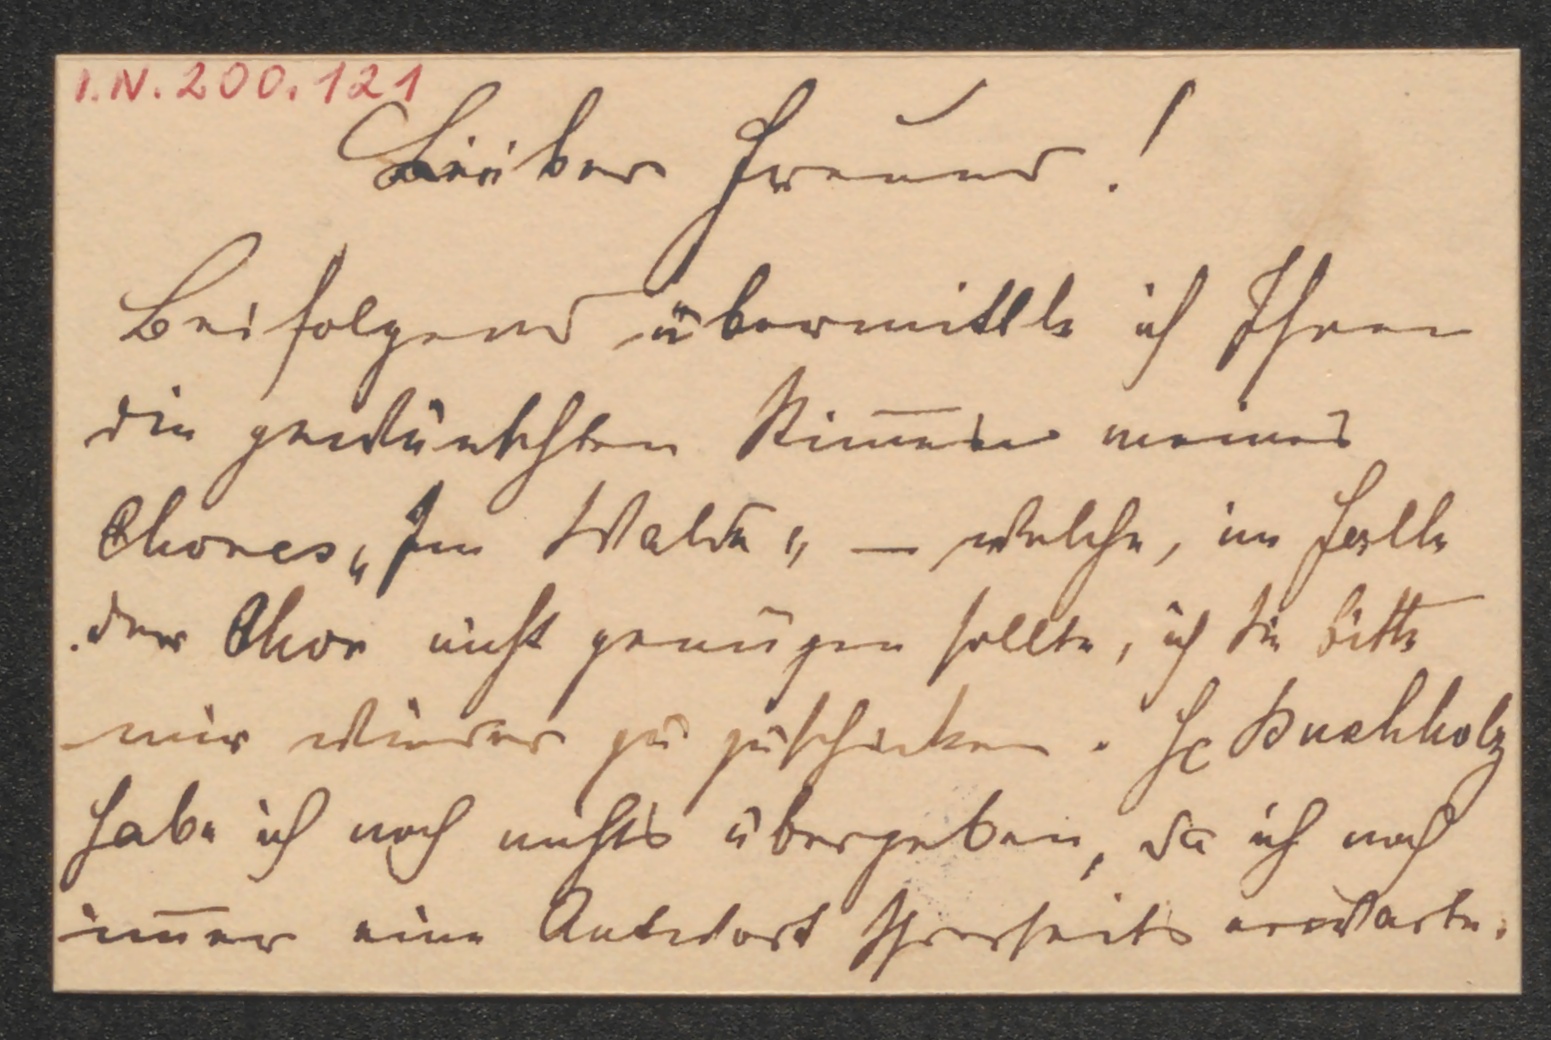 I.N. 200.121
Lieber Freund!
Beifolgend übermittle ich Ihnen
die gewünschten Stim̅en meines
Chores „Im Walde„ — welche, im Falle
der Chor nicht genügen sollte, ich Sie bitte
mir wieder zu zuschicken. H Buchholz
habe ich noch nichts übergeben, da ich noch
im̅er eine Antwort Ihrerseits erwarte.